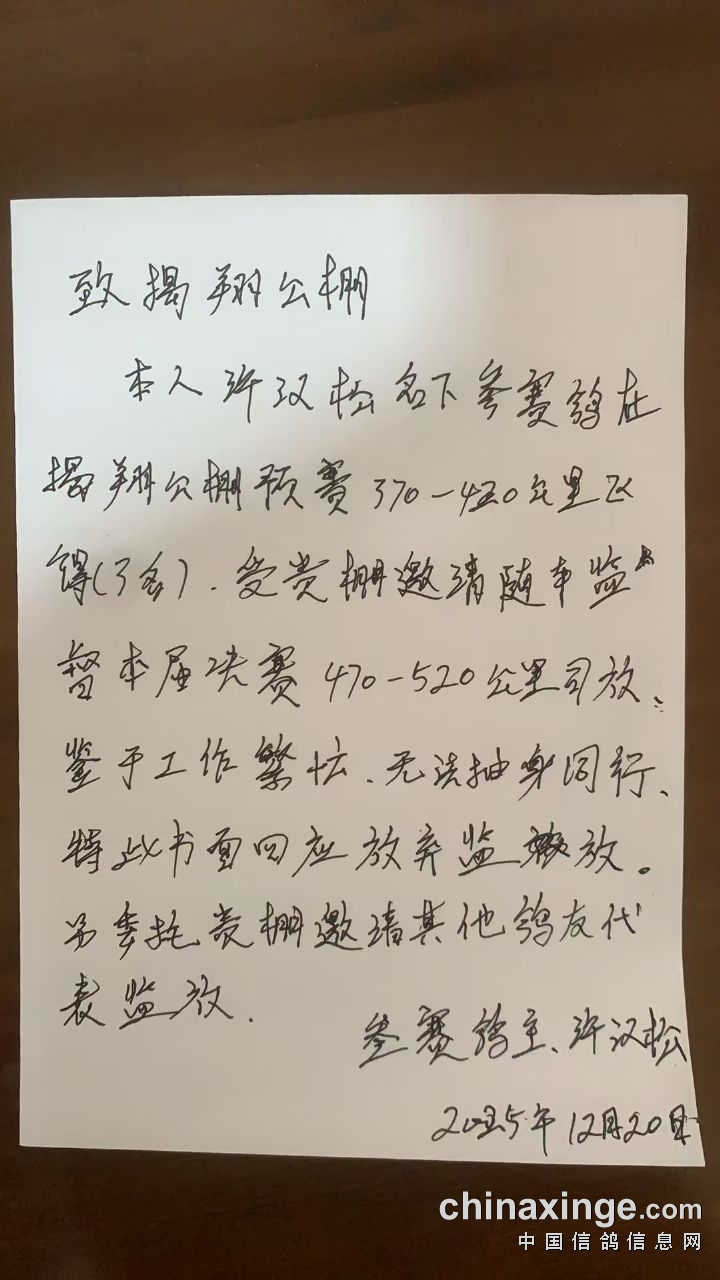 致揭翔公棚
本人许汉松名下参赛鸽在
揭翔公棚预赛370-420公里飞
得(3名).受贵棚邀请随车监
督本届决赛470-520公里司放、
鉴于工作繁忙、无法抽身同行、
特此书面回应放弃监放。
另委托贵棚邀请其他鸽友代
表监放.
参赛鸽主、许汉松
2025年12月20日
chinaxinge.com
中国信鸽信息网